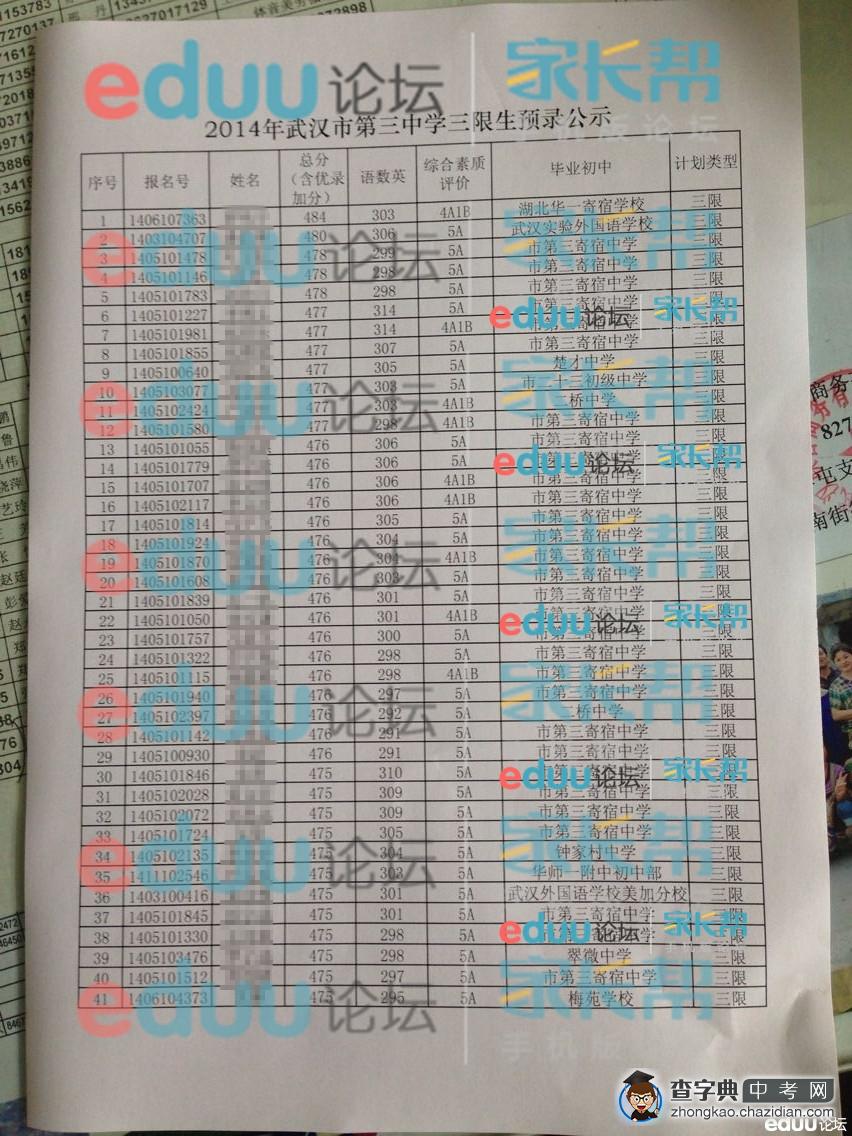 2014年武汉市第三中学三限生预录公示
序号 报名号 姓名 总分（含优录加分） 语数英 综合素质评价 毕业初中 计划类型
1 1406107363 484 303 4A1B 湖北华一寄宿学校 三限
2 1403104707 480 306 5A 武汉实验外国语学校 三限
3 1405101478 478 299 5A 市第三寄宿中学 三限
4 1405101146 478 298 5A 市第三寄宿中学 三限
5 1405101783 478 298 5A 市第三寄宿中学 三限
6 1405101227 477 314 5A 市第三寄宿中学 三限
7 1405101981 477 314 4A1B 市第三寄宿中学 三限
8 1405101855 477 307 5A 市第三寄宿中学 三限
9 1405100640 477 305 5A 楚才中学 三限
10 1405103077 477 303 5A 市二十三初级中学 三限
11 1405102424 477 303 4A1B 二桥中学 三限
12 1405101580 477 298 4A1B 市第三寄宿中学 三限
13 1405101055 476 306 5A 市第三寄宿中学 三限
14 1405101779 476 306 5A 市第三寄宿中学 三限
15 1405101707 476 306 4A1B 市第三寄宿中学 三限
16 1405102117 476 306 4A1B 市第三寄宿中学 三限
17 1405101814 476 305 5A 市第三寄宿中学 三限
18 1405101924 476 304 5A 市第三寄宿中学 三限
19 1405101870 476 304 4A1B 市第三寄宿中学 三限
20 1405101608 476 303 5A 市第三寄宿中学 三限
21 1405101839 476 301 5A 市第三寄宿中学 三限
22 1405101050 476 301 4A1B 市第三寄宿中学 三限
23 1405101757 476 300 5A 市第三寄宿中学 三限
24 1405101322 476 298 5A 市第三寄宿中学 三限
25 1405101115 476 298 4A1B 市第三寄宿中学 三限
26 1405101940 476 297 5A 市第三寄宿中学 三限
27 1405102397 476 292 5A 二桥中学 三限
28 1405101142 476 291 5A 市第三寄宿中学 三限
29 1405100930 476 291 5A 市第三寄宿中学 三限
30 1405101846 475 310 5A 市第三寄宿中学 三限
31 1405102028 475 309 5A 市第三寄宿中学 三限
32 1405102072 475 309 5A 市第三寄宿中学 三限
33 1405101724 475 305 5A 市第三寄宿中学 三限
34 1405102135 475 304 5A 钟家村中学 三限
35 1411102546 475 303 5A 华师一附中初中部 三限
36 1403100416 475 301 5A 武汉外国语学校美加分校 三限
37 1405101845 475 301 5A 市第三寄宿中学 三限
38 1405101330 475 298 5A 市第三寄宿中学 三限
39 1405103476 475 298 5A 翠微中学 三限
40 1405101512 475 297 5A 市第三寄宿中学 三限
41 1406104373 475 295 5A 梅苑学校 三限
eduu论坛 家长帮
手机版论坛
查字典中考网
zhongkao.chazidian.com
eduu论坛